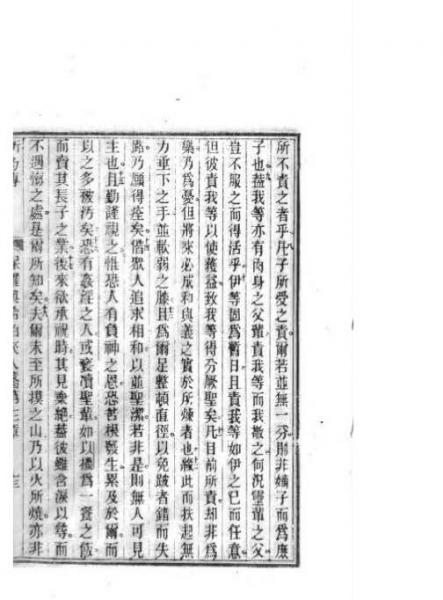 所不責之者乎凡子所受之責爾若並無一分則非嫡子而為庶
子也蓋我等亦有肉身之父輩責我等而我敬之何況靈輩之父
豈不服之而得活乎伊等固為暫日且責我等如伊之已而任意
但彼責我等以使獲益致我等得分厥聖矣凡目前所責却非為
樂乃為憂但將來必成和與義之實於所煉者也緣此而扶起無
力垂下之手並軟弱之膝且為爾足整頓直徑以免跛者錯而失
路乃願得痊矣偕眾人追求相和以並聖潔若非是則無人可見
主也且勤謹視之惟恐人有負神之恩恐苦根發生累及於爾而
以之多被污矣恐有淫之人或褻瀆聖輩如以掃為一餐之飯
而賣其長子之業後來欲承祝時其見棄絕蓋彼雖含淚以尋而
不遇悔之處是爾所知矣夫爾未至所摸之山乃以火所燒亦非